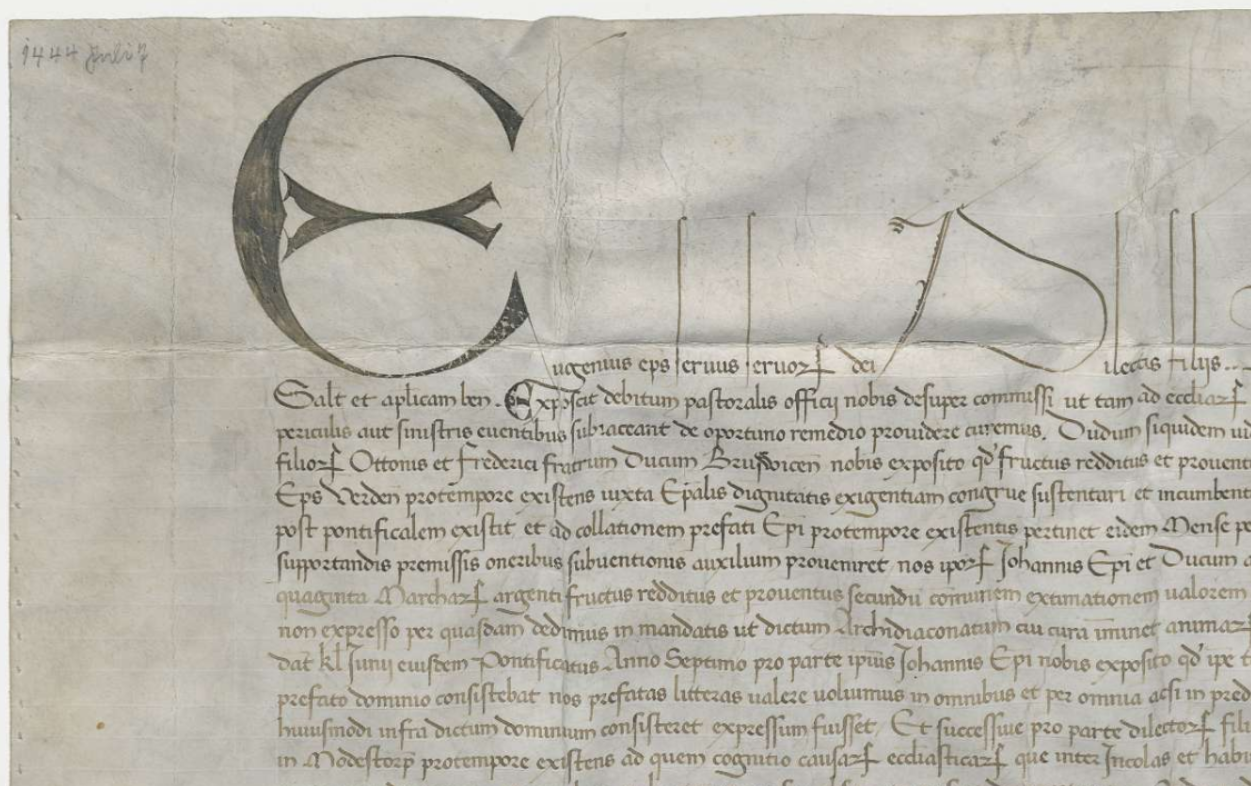 1444 Juli 7
Eugenius eps seruus seruoꝝ dei Dilectis filijs..
Salt et aplicam ben. Exposcit debitum pastoralis officij nobis desuper commissi ut tam ad eccliaꝝ
periculis aut sinistris euentibus subiaceant de oportuno remedio prouidere curemus. Dudum siquidem
filioꝝ Ottonis et Frederici fratrum Ducum Brunswicen nobis exposito qd' fructus redditus et prouent
Eps Verden protempore existens iuxta Epalis dignitatis exigentiam congrue sustentari et incumbent
post pontificalem existit et ad collationem prefati Epi protempore existentis pertinet eidem Mense
supportandis premissis oneribus subuentionis auxilium proueniret nos ipoꝝ Johannis Epi et Ducum
quaginta Marchaꝝ argenti fructus redditus et prouentus secundu comunem extimationem ualorem
non expresso per quasdam dedimus in mandatis ut dictum Archidiaconatum cui cura iminet animaꝝ
dat kl Junii eiusdem Pontificatus Anno Septimo pro parte ipius Johannis Epi nobis exposito qd' ipe
prefato dominio consistebat nos prefatas litteras ualere uoluimus in omnibus et per omnia acsi in pred
huiusmodi infra dictum dominium consisteret expressum fuisset. Et successiue pro parte dilectoꝝ fili
in Modestorp protempore existens ad quem cognitio causaꝝ eccliasticaꝝ que inter Incolas et habi